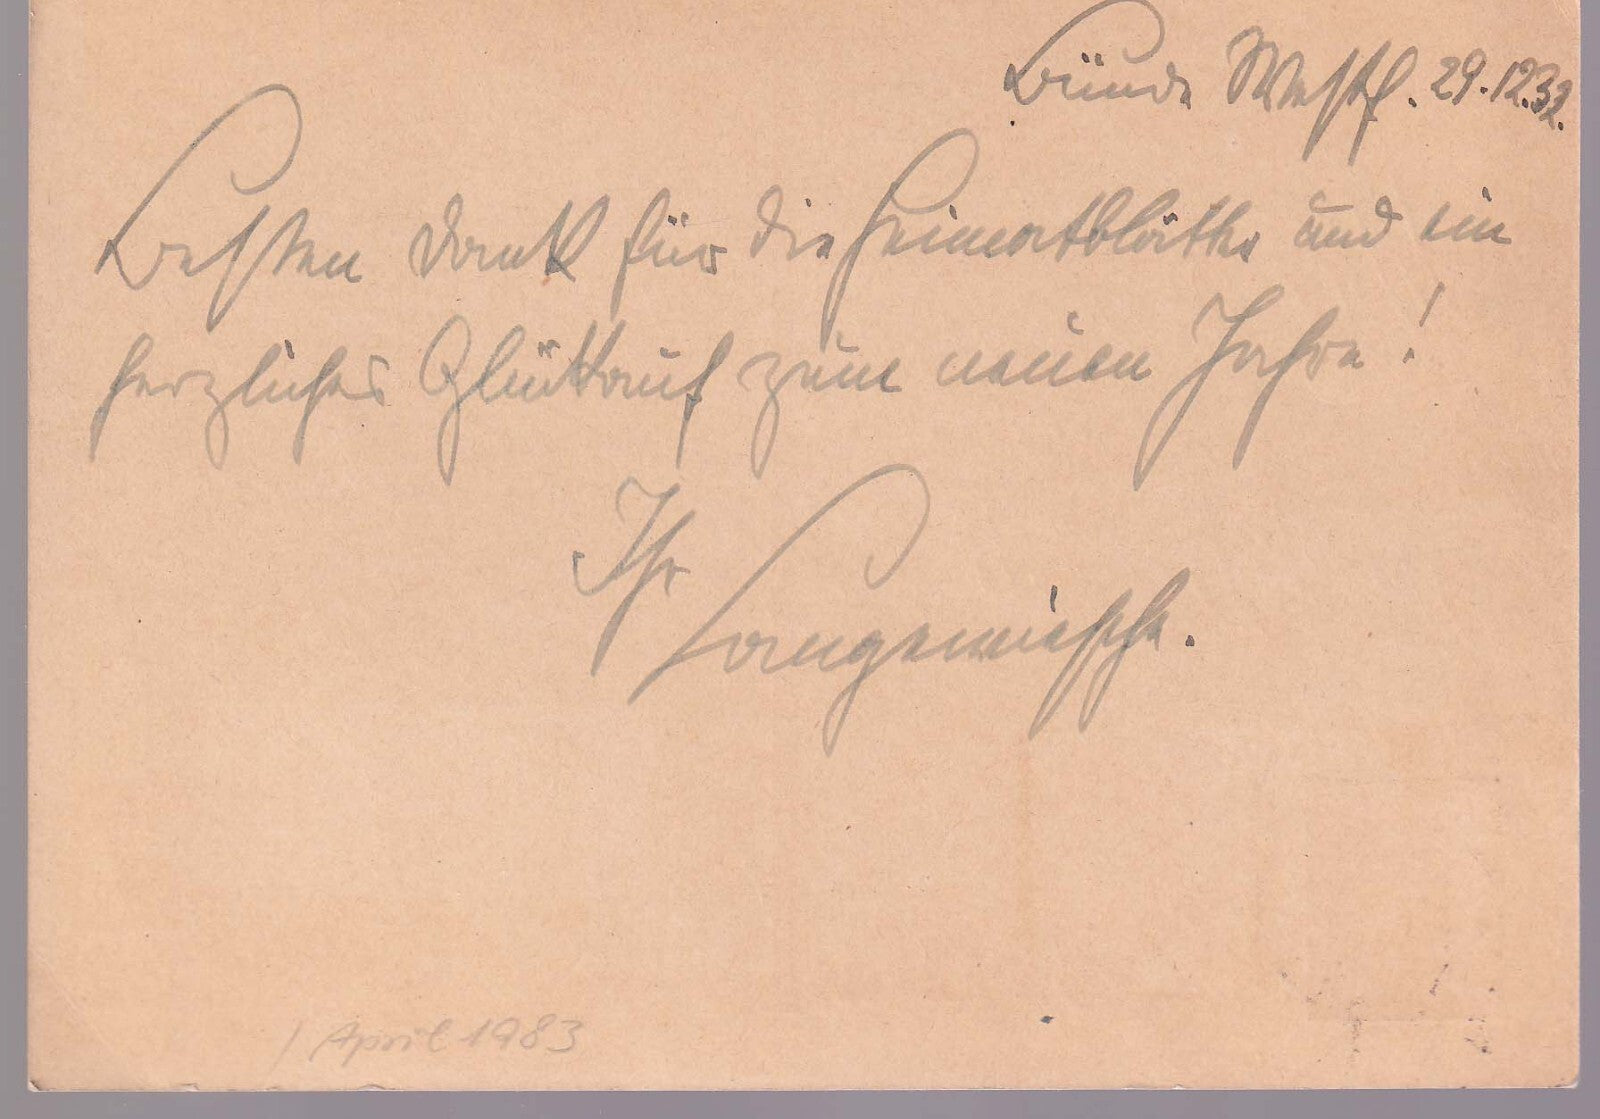 Bünde Westf. 29.12.32.
Besten Dank für die Heimatblätter und ein
herzliches Glückauf zum neuen Jahre!
Ihr
Langewiesche.
April 1983